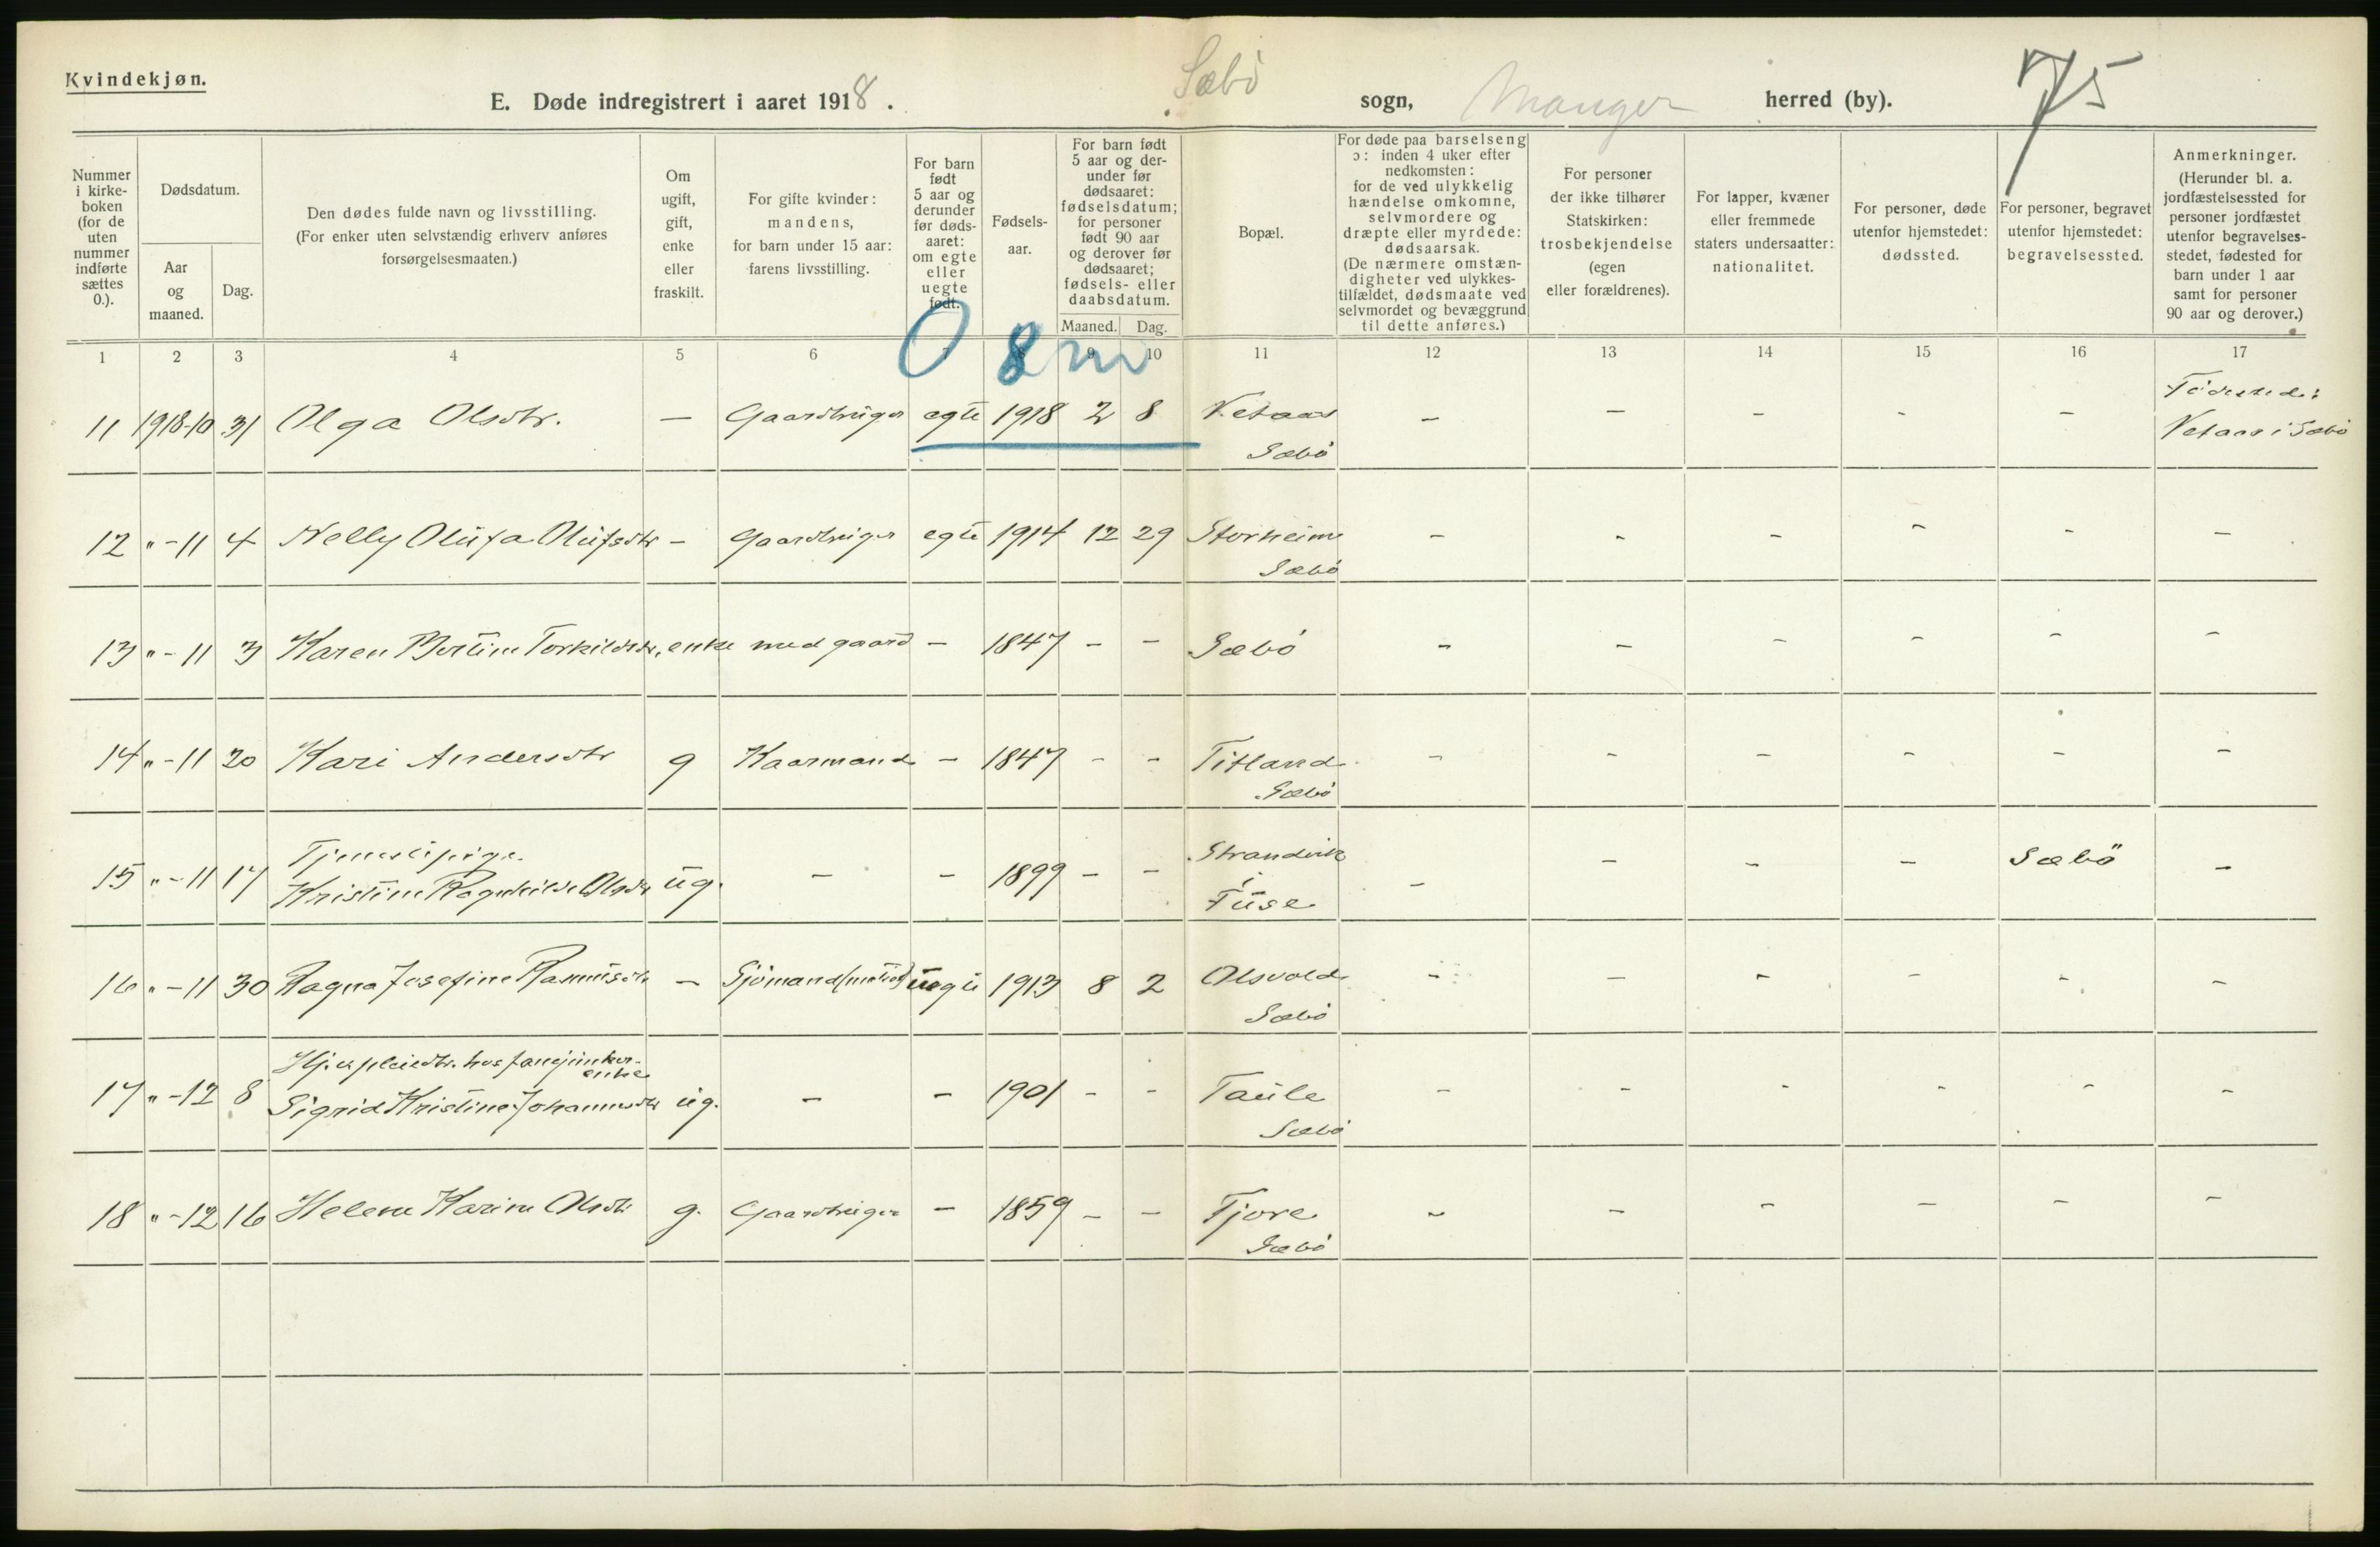 Kvindekjøn.
E. Døde indregistrert i aaret 1918.
Sæbö sogn, Manger herred (by).
75
Nummer i kirkeboken (for de uten nummer indførte sættes 0.).
Dødsdatum.
Aar og maaned.
Dag.
Den dødes fulde navn og livsstilling.
(For enker uten selvstændig erhverv anføres forsørgelsesmaaten.)
Om ugift, gift, enke eller fraskilt.
For gifte kvinder: mandens, for barn under 15 aar: farens livsstilling.
For barn født 5 aar og derunder før dødsaaret: om egte eller uegte født.
Fødselsaar.
For barn født 5 aar og derunder før dødsaaret: fødselsdatum; for personer født 90 aar og derover før dødsaaret; fødsels- eller daabsdatum.
Maaned. Dag.
Bopæl.
For døde paa barselseng ɔ: inden 4 uker efter nedkomsten: for de ved ulykkelig hændelse omkomne, selvmordere og dræpte eller myrdede: dødsaarsak. (De nærmere omstændigheter ved ulykkestilfældet, dødsmaate ved selvmordet og bevæggrund til dette anføres.)
For personer der ikke tilhører Statskirken: trosbekjendelse (egen eller forældrenes).
For lapper, kvæner eller fremmede staters undersaatter: nationalitet.
For personer, døde utenfor hjemstedet: dødssted.
For personer, begravet utenfor hjemstedet: begravelsessted.
Anmerkninger. (Herunder bl. a. jordfæstelsessted for personer jordfæstet utenfor begravelsesstedet, fødested for barn under 1 aar samt for personer 90 aar og derover.)
1 2 3 4 5 6 7 8 9 10 11 12 13 14 15 16 17
0 8 m
11 1918-10 31 Olga Olsdtr. — Gaardbruger egte 1918 2 8 Vetaas Sæbö — — — - — Födested: Vetaas i Sæbö
12 " - 11 4 Nelly Olufa Olufsdtr - Gaardbruger egte 1914 12 29 Storheim Sæbö - - - - - -
13 " - 11 3 Karen Bertine Torkildsdtr. enke med gaard - 1847 - - Sæbö - - - - - -
14 " - 11 20 Kari Andersdtr g Kaarmand - 1847 - - Titland Sæbö - - - - - -
15 " - 11 17 Tjenestepige. Kristine Ragnhilde Olsdtr ug. - - 1899 - - Strandvik i Fuse - - - - Sæbö -
16 " - 11 30 Ragna Josefine Rasmusdtr - Sjömand uegte 1913 8 2 Olsvold Sæbö - - - - - -
17 " - 12 8 enke Sigrid Kristine Johannesdtr ug. - - 1901 - - Taule Sæbö - - - - - -
18 " - 12 16 Helene Karine Olsdtr g. Gaardbruger - 1859 - - Fjore Sæbö - - - - - -